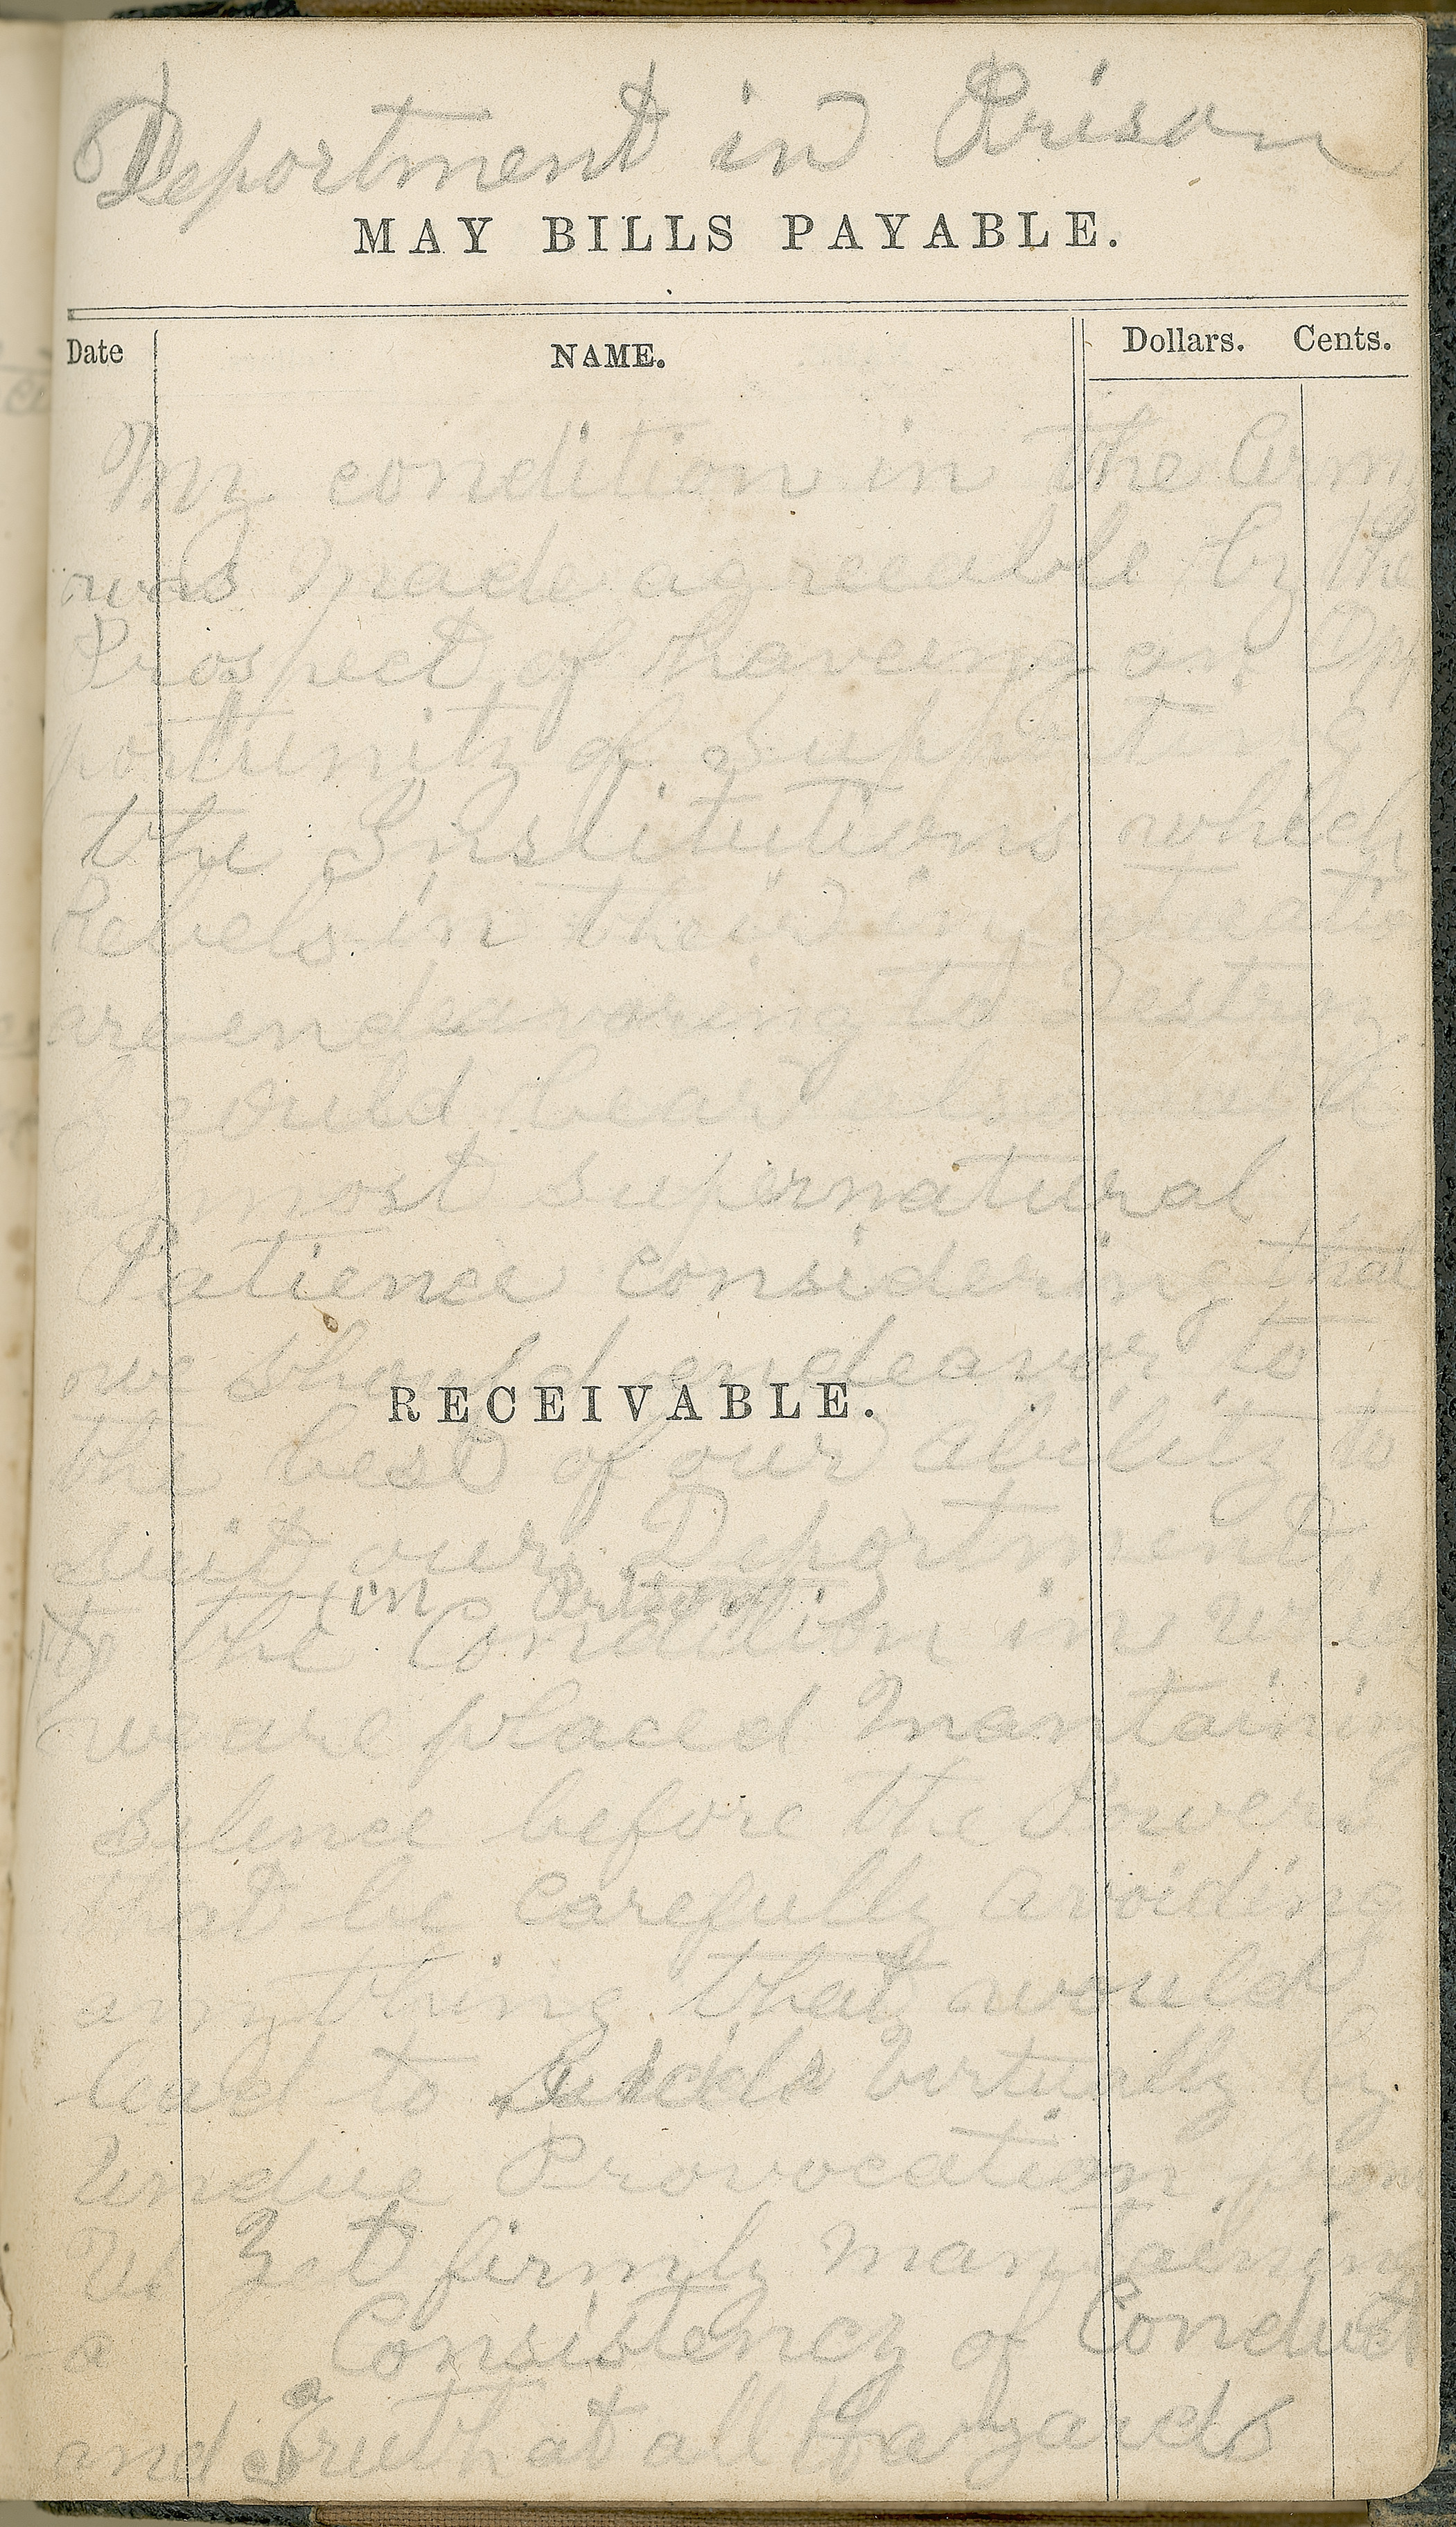 Deportment in Prison
MAY BILLS PAYABLE.
Date NAME. Dollars. Cents.
My condition in the Army
was Made agreeable by the
Prospect of haveing an Opp
portunity of Supporting
the Institutions which
Rebels in their
are endeavoring to Destroy
I could bear
almost supernatural
Patience considering that
we should endeavor to
RECEIVABLE.
the best of our ability to
suit our Deportment
in Prison
to the Condition in which
we are placed Mantaining
Silence before the Powers
that be carefully avoiding
any thing that would
lead to Virtually by
Undue Provocation from
Us Yet firmly mantaining
a Consistency of Conduct
and Truth at all Hazards